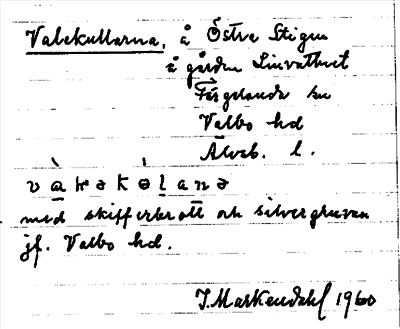 Valekullarna, å Östra Stigen
å gården Linvattnet
Färgelanda sn
Valbo hd
Älvsb. l.
med skifferbrott och silvergruvan
jf. Valbo hd.
J. Markendahl 1960